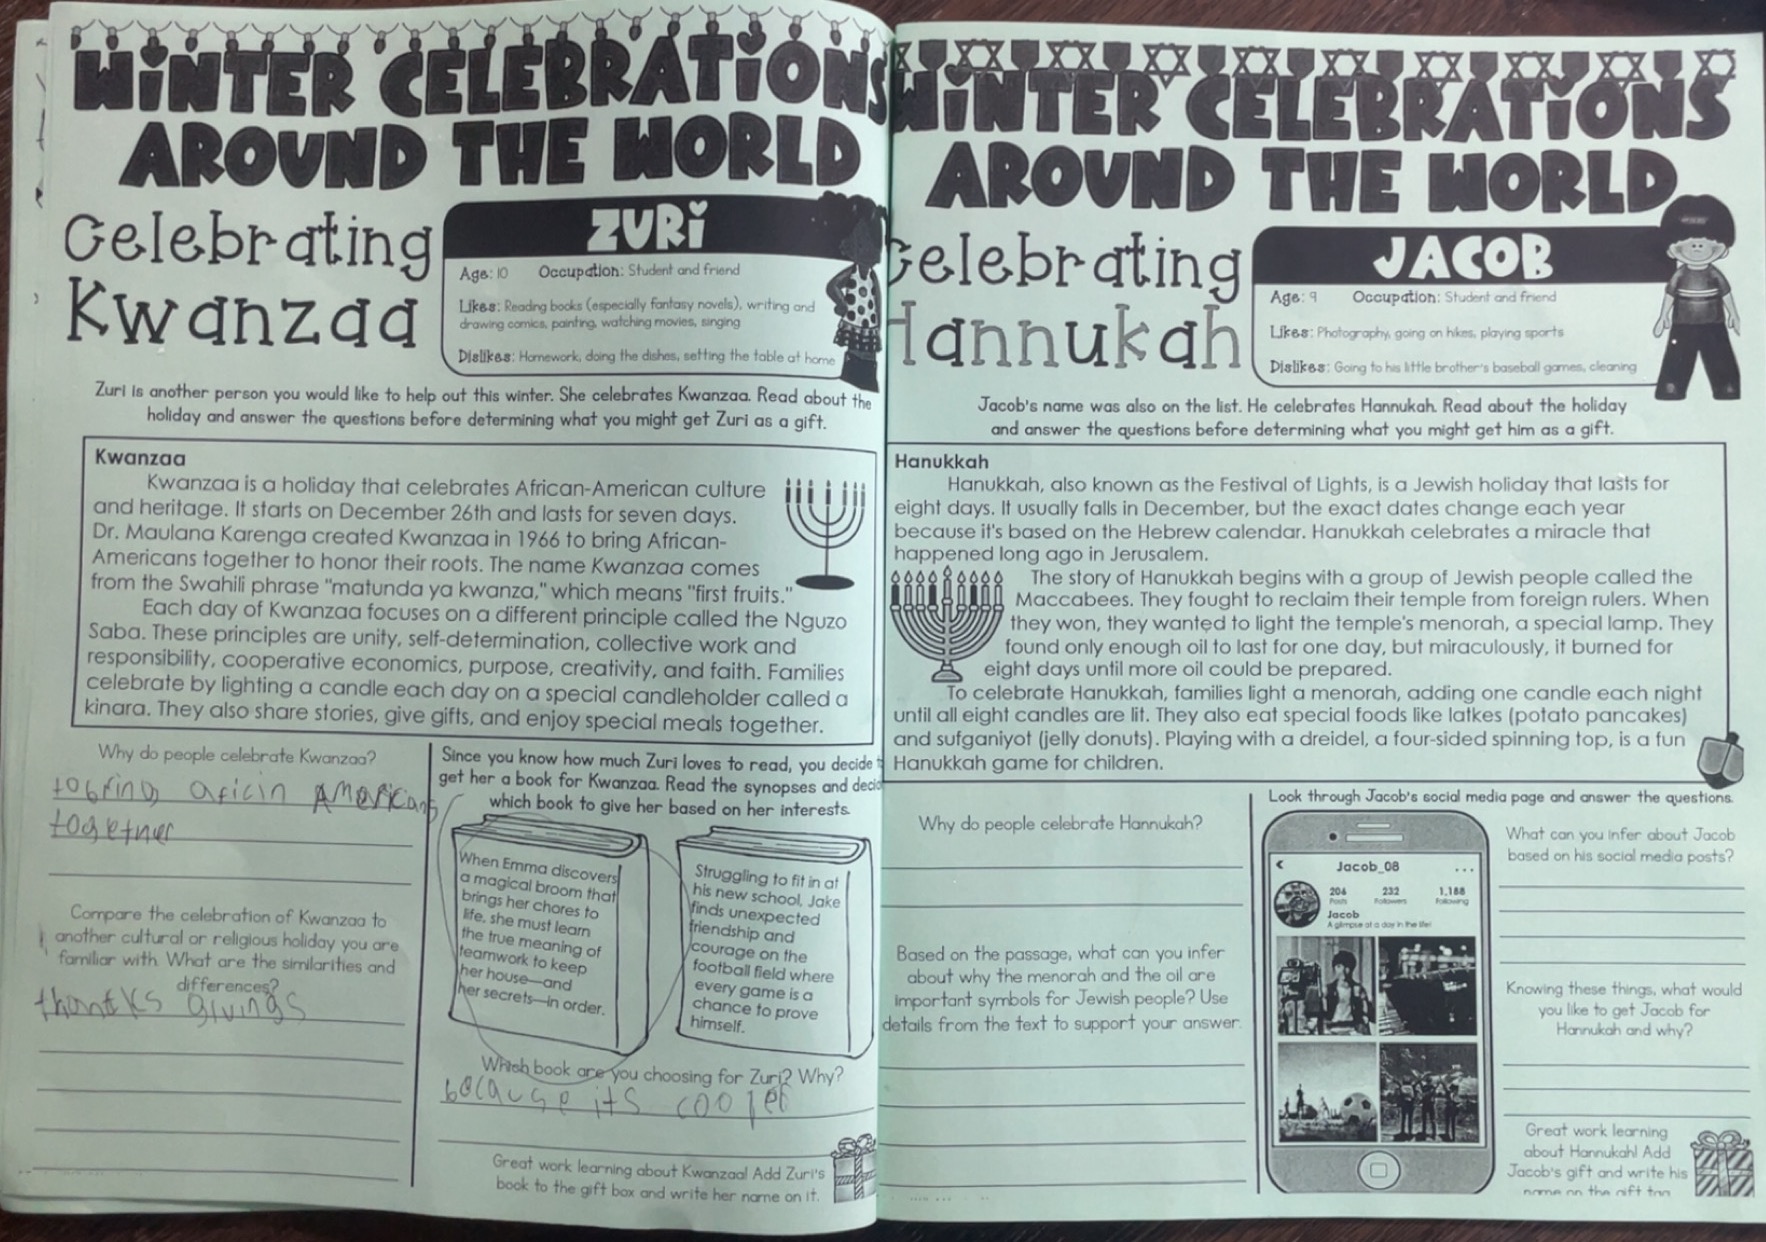 WINTER CELEBRATIONS
AROUND THE WORLD
Celebrating
Kwanzaa
ZURI
Age: 10 Occupation: Student and friend
Likes: Reading books (especially fantasy novels), writing and
drawing comics, painting, watching movies, singing
Dislikes: Homework, doing the dishes, setting the table at home
Zuri is another person you would like to help out this winter. She celebrates Kwanzaa. Read about the
holiday and answer the questions before determining what you might get Zuri as a gift.
Kwanzaa
Kwanzaa is a holiday that celebrates African-American culture
and heritage. It starts on December 26th and lasts for seven days.
Dr. Maulana Karenga created Kwanzaa in 1966 to bring African-
Americans together to honor their roots. The name Kwanzaa comes
from the Swahili phrase "matunda ya kwanza," which means "first fruits."
Each day of Kwanzaa focuses on a different principle called the Nguzo
Saba. These principles are unity, self-determination, collective work and
responsibility, cooperative economics, purpose, creativity, and faith. Families
celebrate by lighting a candle each day on a special candleholder called a
kinara. They also share stories, give gifts, and enjoy special meals together.
Why do people celebrate Kwanzaa?
to bring africin Americans
together
Compare the celebration of Kwanzaa to
another cultural or religious holiday you are
familiar with. What are the similarities and
differences?
thanks givings
Since you know how much Zuri loves to read, you decide
get her a book for Kwanzaa. Read the synopses and
which book to give her based on her interests.
When Emma discovers
a magical broom that
brings her chores to
life, she must learn
the true meaning of
teamwork to keep
her house—and
her secrets—in order.
Struggling to fit in at
his new school, Jake
finds unexpected
friendship and
courage on the
football field where
every game is a
chance to prove
himself.
Which book are you choosing for Zuri? Why?
because its cooler
Great work learning about Kwanzaa! Add Zuri's
book to the gift box and write her name on it.
WINTER CELEBRATIONS
AROUND THE WORLD
Celebrating
Hannukah
JACOB
Age: 9 Occupation: Student and friend
Likes: Photography, going on hikes, playing sports
Dislikes: Going to his little brother's baseball games, cleaning
Jacob's name was also on the list. He celebrates Hannukah. Read about the holiday
and answer the questions before determining what you might get him as a gift.
Hanukkah
Hanukkah, also known as the Festival of Lights, is a Jewish holiday that lasts for
eight days. It usually falls in December, but the exact dates change each year
because it's based on the Hebrew calendar. Hanukkah celebrates a miracle that
happened long ago in Jerusalem.
The story of Hanukkah begins with a group of Jewish people called the
Maccabees. They fought to reclaim their temple from foreign rulers. When
they won, they wanted to light the temple's menorah, a special lamp. They
found only enough oil to last for one day, but miraculously, it burned for
eight days until more oil could be prepared.
To celebrate Hanukkah, families light a menorah, adding one candle each night
until all eight candles are lit. They also eat special foods like latkes (potato pancakes)
and sufganiyot (jelly donuts). Playing with a dreidel, a four-sided spinning top, is a fun
Hanukkah game for children.
Why do people celebrate Hannukah?
Based on the passage, what can you infer
about why the menorah and the oil are
important symbols for Jewish people? Use
details from the text to support your answer.
Look through Jacob's social media page and answer the questions.
Jacob_08
206 232 1,188
Posts Followers Following
Jacob
A glimpse at a day in the life!
What can you infer about Jacob
based on his social media posts?
Knowing these things, what would
you like to get Jacob for
Hannukah and why?
Great work learning
about Hannukah! Add
Jacob's gift and write his
name on the gift tag